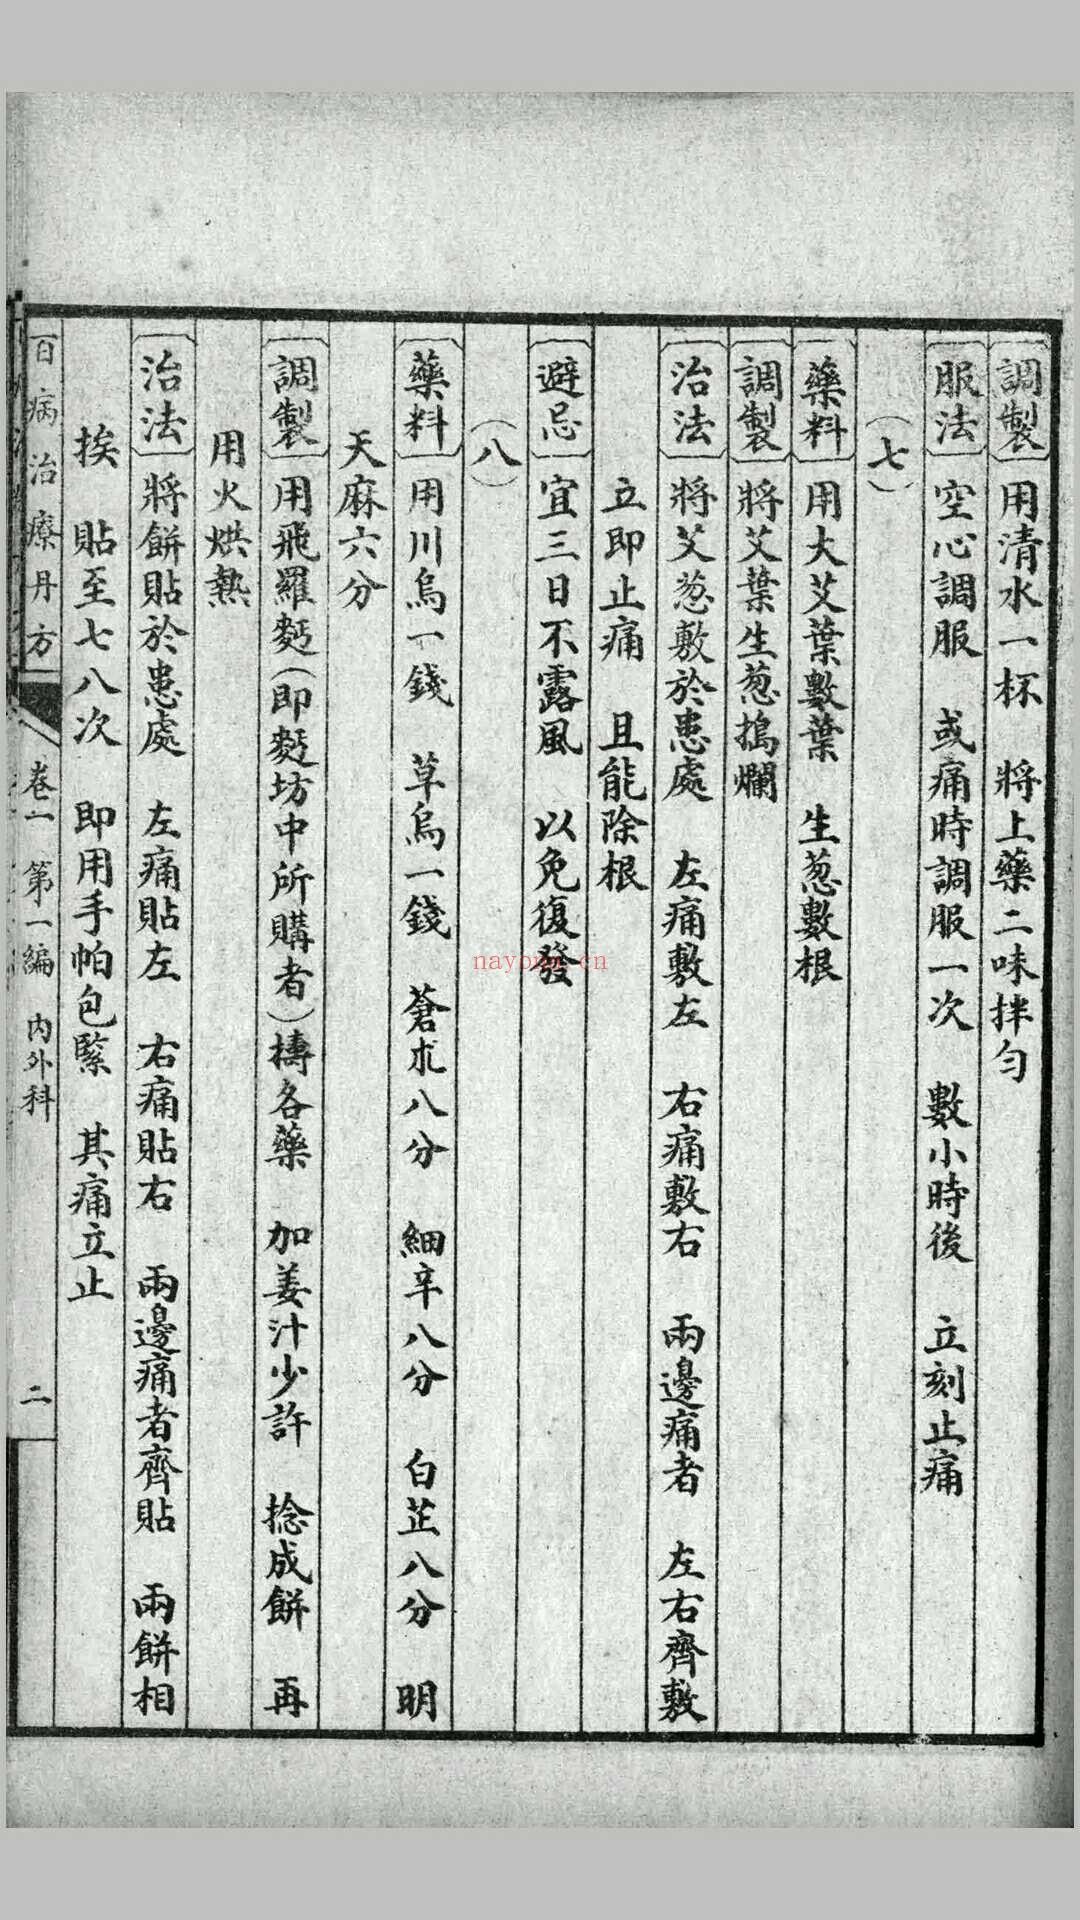 〔調製〕用清水一杯　將上藥二味拌勻
〔服法〕空心調服　或痛時調服一次　數小時後　立刻止痛
（七）
〔藥料〕用大艾葉數葉　生葱數根
〔調製〕將艾葉生葱搗爛
〔治法〕將艾葱敷於患處　左痛敷左　右痛敷右　兩邊痛者　左右齊敷
立即止痛　且能除根
〔避忌〕宜三日不露風　以免復發
（八）
〔藥料〕用川烏一錢　草烏一錢　蒼朮八分　細辛八分　白芷八分　明
天麻六分
〔調製〕用飛羅麪（即麪坊中所購者）摶各藥　加姜汁少許　捻成餅　再
用火烘熱
〔治法〕將餅貼於患處　左痛貼左　右痛貼右　兩邊痛者齊貼　兩餅相
挨　貼至七八次　即用手帕包緊　其痛立止
百病治療丹方　卷一　第一編　內外科　二
nayona.cn